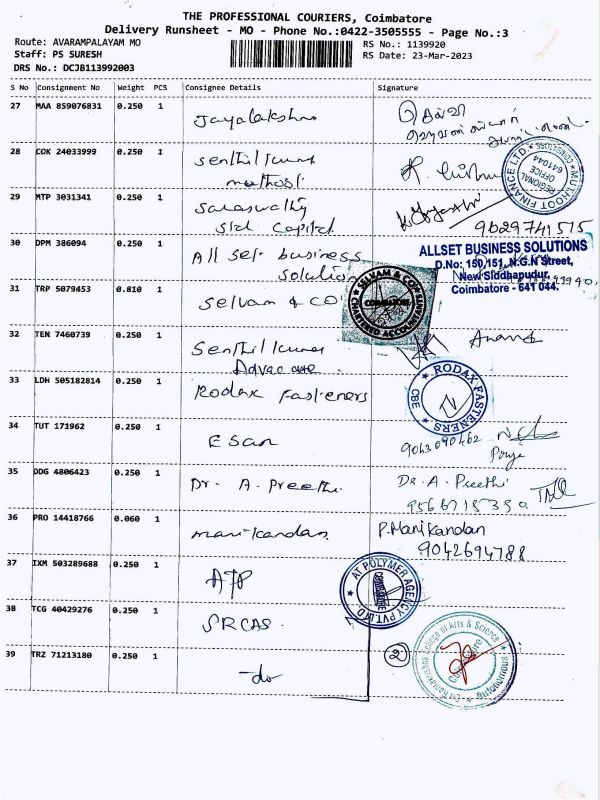 THE PROFESSIONAL COURIERS, Coimbatore
Delivery Runsheet - MO - Phone No.:0422-3505555 - Page No.:3
Route: AVARAMPALAYAM MO
RS No.: 1139920
Staff: PS SURESH
RS Date: 23-Mar-2023
DRS No.: DCJB113992003
S No Consignment No Weight PCS Consignee Details Signature
27 MAA 859076831 0.250 1 Jayalakshmi
28 COK 24033999 0.250 1 Senthil Kumar
MUTHOOT FINANCE LTD. COIMBATORE
REGIONAL OFFICE 641044
29 MTP 3031341 0.250 1 Saraswathy
Std Capital
9629741515
30 DPM 386094 0.250 1 All Set business
Solution
ALLSET BUSINESS SOLUTIONS
D.No: 150,151, N.G.N Street,
New Siddhapudur,
Coimbatore - 641 044.
31 TRP 5079453 0.810 1 Selvam & CO
SELVAM & CO
COIMBATORE
CHARTERED ACCOUNTANTS
32 TEN 7460739 0.250 1 Senthil Kumar
Advocate
Anand
33 LDH 505182814 0.250 1 Rodax Fasteners
RODAX FASTENERS CBE
34 TUT 171962 0.250 1 ESan
9043090462
Pooja
35 DDG 4806423 0.250 1 Dr. A. Preethi.
Dr. A. Preethi
36 PRO 14418766 0.060 1 manikandan
P.Manikandan
9042694788
37 IXM 503289688 0.250 1 ATP
AT POLYMER AGENCY PVT LTD
COIMBATORE
38 TCG 40429276 0.250 1 SRCAS.
39 TRZ 71213180 0.250 1 -do
2
Sri Ramakrishna College of Arts & Science
Coimbatore